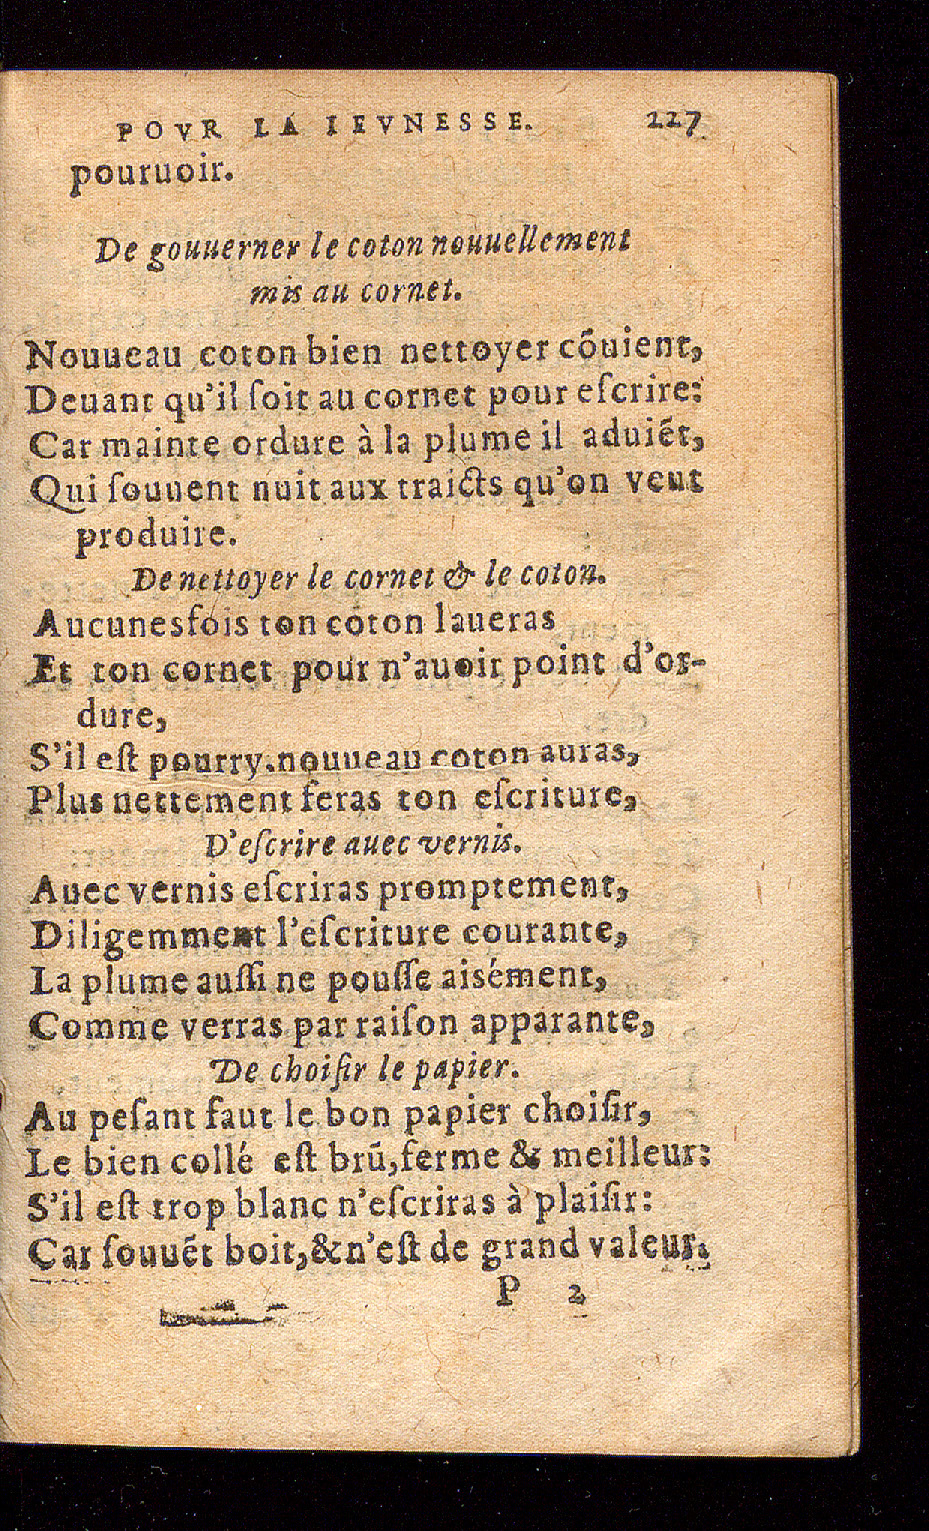 POVR LA IEVNESSE. 227
pouruoir.
De gouuerner le coton nouuellement
mis au cornet.
Nouueau coton bien nettoyer cõuient,
Deuant qu'il ſoit au cornet pour eſcrire:
Car mainte ordure à la plume il aduiẽt,
Qui ſouuent nuit aux traicts qu'on veut
produire.
De nettoyer le cornet & le coton.
Aucunesfois ton coton laueras
Et ton cornet pour n'auoir point d'or-
dure,
S'il eſt pourry, nouueau coton auras,
Plus nettement feras ton eſcriture,
D'eſcrire auec vernis.
Auec vernis eſcriras promptement,
Diligemment l'eſcriture courante,
La plume auſſi ne pouſſe aisément,
Comme verras par raiſon apparante,
De choiſir le papier.
Au peſant faut le bon papier choiſir,
Le bien collé eſt brũ, ferme & meilleur:
S'il eſt trop blanc n'eſcriras à plaiſir:
Car ſouuẽt boit, & n'eſt de grand valeur.
P 2